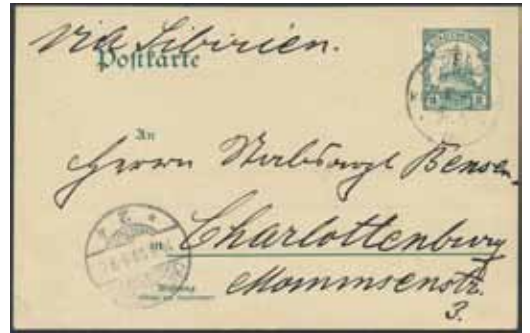 Via Sibirien.
Postkarte
An
Herrn Stabsarzt Bensen
in Charlottenburg
Mommsenstr.
3.